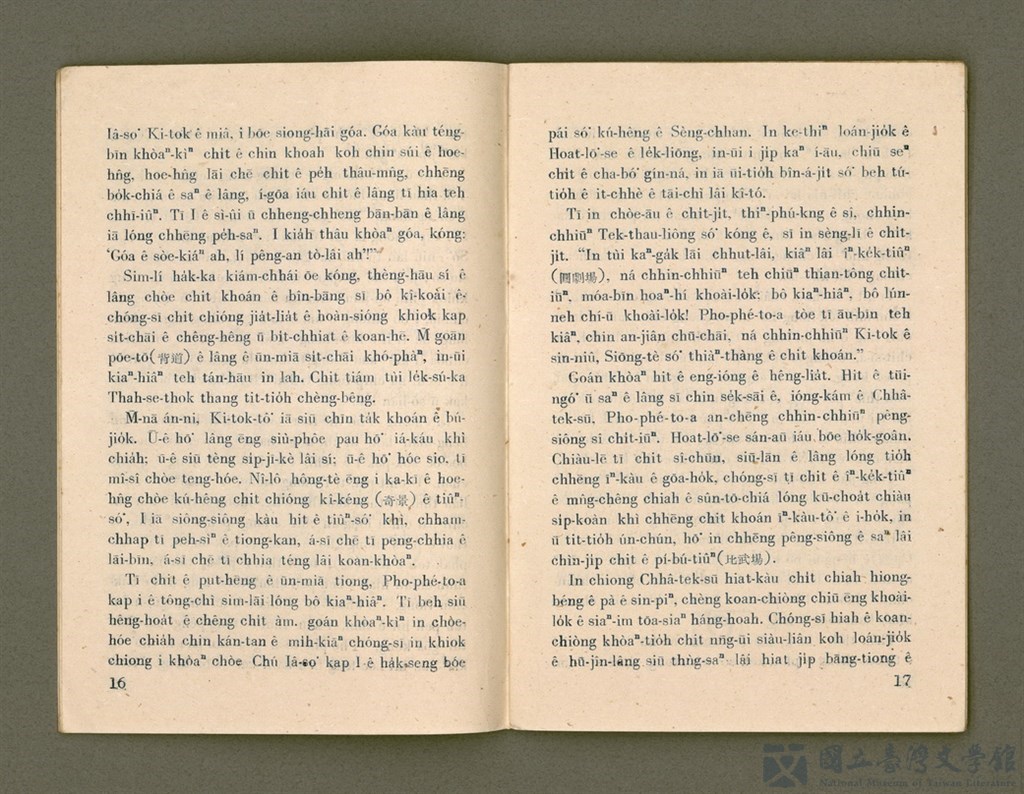 Iâ-so͘ Ki-tok ê miâ, i bōe siong-hāi góa. Góa kàu téng-
bīn khòaⁿ-kìⁿ chi̍t ê chin khoah koh chin súi ê hoe-
hn̂g, hoe-hn̂g lāi chē chi̍t ê pe̍h thâu-mn̂g, chhēng
bo̍k-chiá ê saⁿ ê lâng, í-gōa iáu chi̍t ê lâng tī hia teh
chhī-iûⁿ. Tī I ê sì-ûi ū chheng-chheng bān-bān ê lâng
iā lóng chhēng pe̍h-saⁿ. I kia̍h thâu khòaⁿ góa, kóng:
‘Góa ê sòe-kiáⁿ ah, lí pêng-an tò-lâi ah’!”
Sim-lí ha̍k-ka kiám-chhái ōe kóng, thèng-hāu sí ê
lâng chòe chi̍t khoán ê bîn-bāng sī bô kî-koài ê·
chóng-sī chit chióng jia̍t-lia̍t ê hoàn-sióng khiok kap
si̍t-chāi ê chêng-hêng ū bi̍t-chhiat ê koan-hē. M̄ goān
pōe-tō(背道) ê lâng ê ūn-miā si̍t-chāi khó-phàⁿ, in-ūi
kiaⁿ-hiâⁿ teh tán-hāu in lah. Chit tiám tùi le̍k-sú-ka
Thah-se-thok thang tit-tio̍h chèng-bêng.
M̄-nā án-ni, Ki-tok-tô͘ iā siū chīn ta̍k khoán ê bú-
jio̍k. Ū-ê hō͘ lâng ēng siù-phôe pau hō͘ iá-káu khì
chia̍h; ū-ê siū tèng si̍p-jī-kè lâi sí; ū-ê hō͘ hóe sio, tī
mî-sî chòe teng-hóe. Nî-lô hông-tè ēng i ka-kī ê hoe-
hn̂g chòe kú-hêng chit chióng kî-kéng (奇景) ê tiûⁿ-
só͘, I iā siông-siông kàu hit ê tiûⁿ-só͘ khì, chham-
chhap tī peh-sìⁿ ê tiong-kan, á-sī chē tī peng-chhia ê
lāi-bīn, á-sī chē tī chhia téng lâi koan-khòaⁿ.
Tī chit ê put-hēng ê ūn-miā tiong, Pho-phé-to-a
kap i ê tông-chì sim-lāi lóng bô kiaⁿ-hiâⁿ. Tī beh siū
hêng-hoa̍t ê chêng chi̍t àm. goán khòaⁿ-kìⁿ in chòe-
hóe chia̍h chin kán-tan ê mi̍h-kiāⁿ chóng-sī in khiok
chiong i khòaⁿ chòe Chú Iâ-so͘ kap I ê ha̍k-seng bóe
16
pái só͘ kú-hêng ê Sèng-chhan. In ke-thiⁿ loán-jio̍k ê
Hoat-lô͘-se ê le̍k-liōng, in-ūi i ji̍p kaⁿ í-āu, chiū seⁿ
chi̍t ê cha-bó͘ gín-ná, in iā ūi-tio̍h bîn-á-ji̍t só͘ beh tú-
tio̍h ê it-chhè ê tāi-chì lâi kî-tó.
Tī in chòe-āu ê chi̍t-ji̍t, thiⁿ-phú-kng ê sî, chhin-
chhiūⁿ Tek-thau-liông só͘ kóng ê, sī in sèng-lī ê chi̍t-
ji̍t. “In tùi kaⁿ-ga̍k lāi chhut-lâi, kiâⁿ lâi îⁿ-ke̍k-tiûⁿ
(圓劇場), ná chhin-chhiūⁿ teh chiūⁿ thian-tông chi̍t-
iūⁿ, móa-bīn hoaⁿ-hí khoài-lo̍k: bô kiaⁿ-hiâⁿ, bô lún-
neh chí-ū khoài-lo̍k! Pho-phé-to-a tòe tī āu-bīn teh
kiâⁿ, chin an-jiân chū-chāi, ná chhin-chhiūⁿ Ki-tok ê
sin-niû, Siōng-tè só͘ thiàⁿ-thàng ê chi̍t khoán.”
Goán khòaⁿ hit ê eng-ióng ê hêng-lia̍t. Hit ê tūi-
ngó͘ ū saⁿ ê lâng sī chin sek-sāi ê, ióng-kám ê Chhâ-
tek-sū, Pho-phé-to-a an-chēng chhin-chhiūⁿ pêng-
siông sî chi̍t-iūⁿ. Hoat-lô͘-se sán-aū iáu bōe ho̍k-goân.
Chiàu-lē tī chit sî-chūn, siū-lān ê lâng lóng tio̍h
chhēng īⁿ-kàu ê gōa-ho̍k, chóng-sī tī chit ê îⁿ-ke̍k-tiûⁿ
ê mn̂g-chêng chiah ê sûn-tō-chiá lóng kū-choa̍t chiàu
si̍p-koàn khì chhēng chit khoán īⁿ-kàu-tô͘ ê i-ho̍k, in
ū tit-tio̍h ún-chún, hō͘ in chhēng pêng-siông ê saⁿ lâi
chìn-ji̍p chit ê pí-bú-tiûⁿ(比武場).
In chiong Chhâ-tek-sū hiat-kàu chi̍t chiah hiong-
béng ê pà ê sin-piⁿ, chèng koan-chiòng chiū ēng khoài-
lo̍k ê siaⁿ-im tōa-siaⁿ háng-hoah. Chóng-sī hiah ê koan-
chiòng khòaⁿ-tio̍h chit nn̄g-ūi siàu-liân koh loán-jio̍k
ê hū-jîn-lâng siū thǹg-saⁿ lâi hiat ji̍p bāng-tiong ê
17
國立臺灣文學館
National Museum of Taiwan Literature